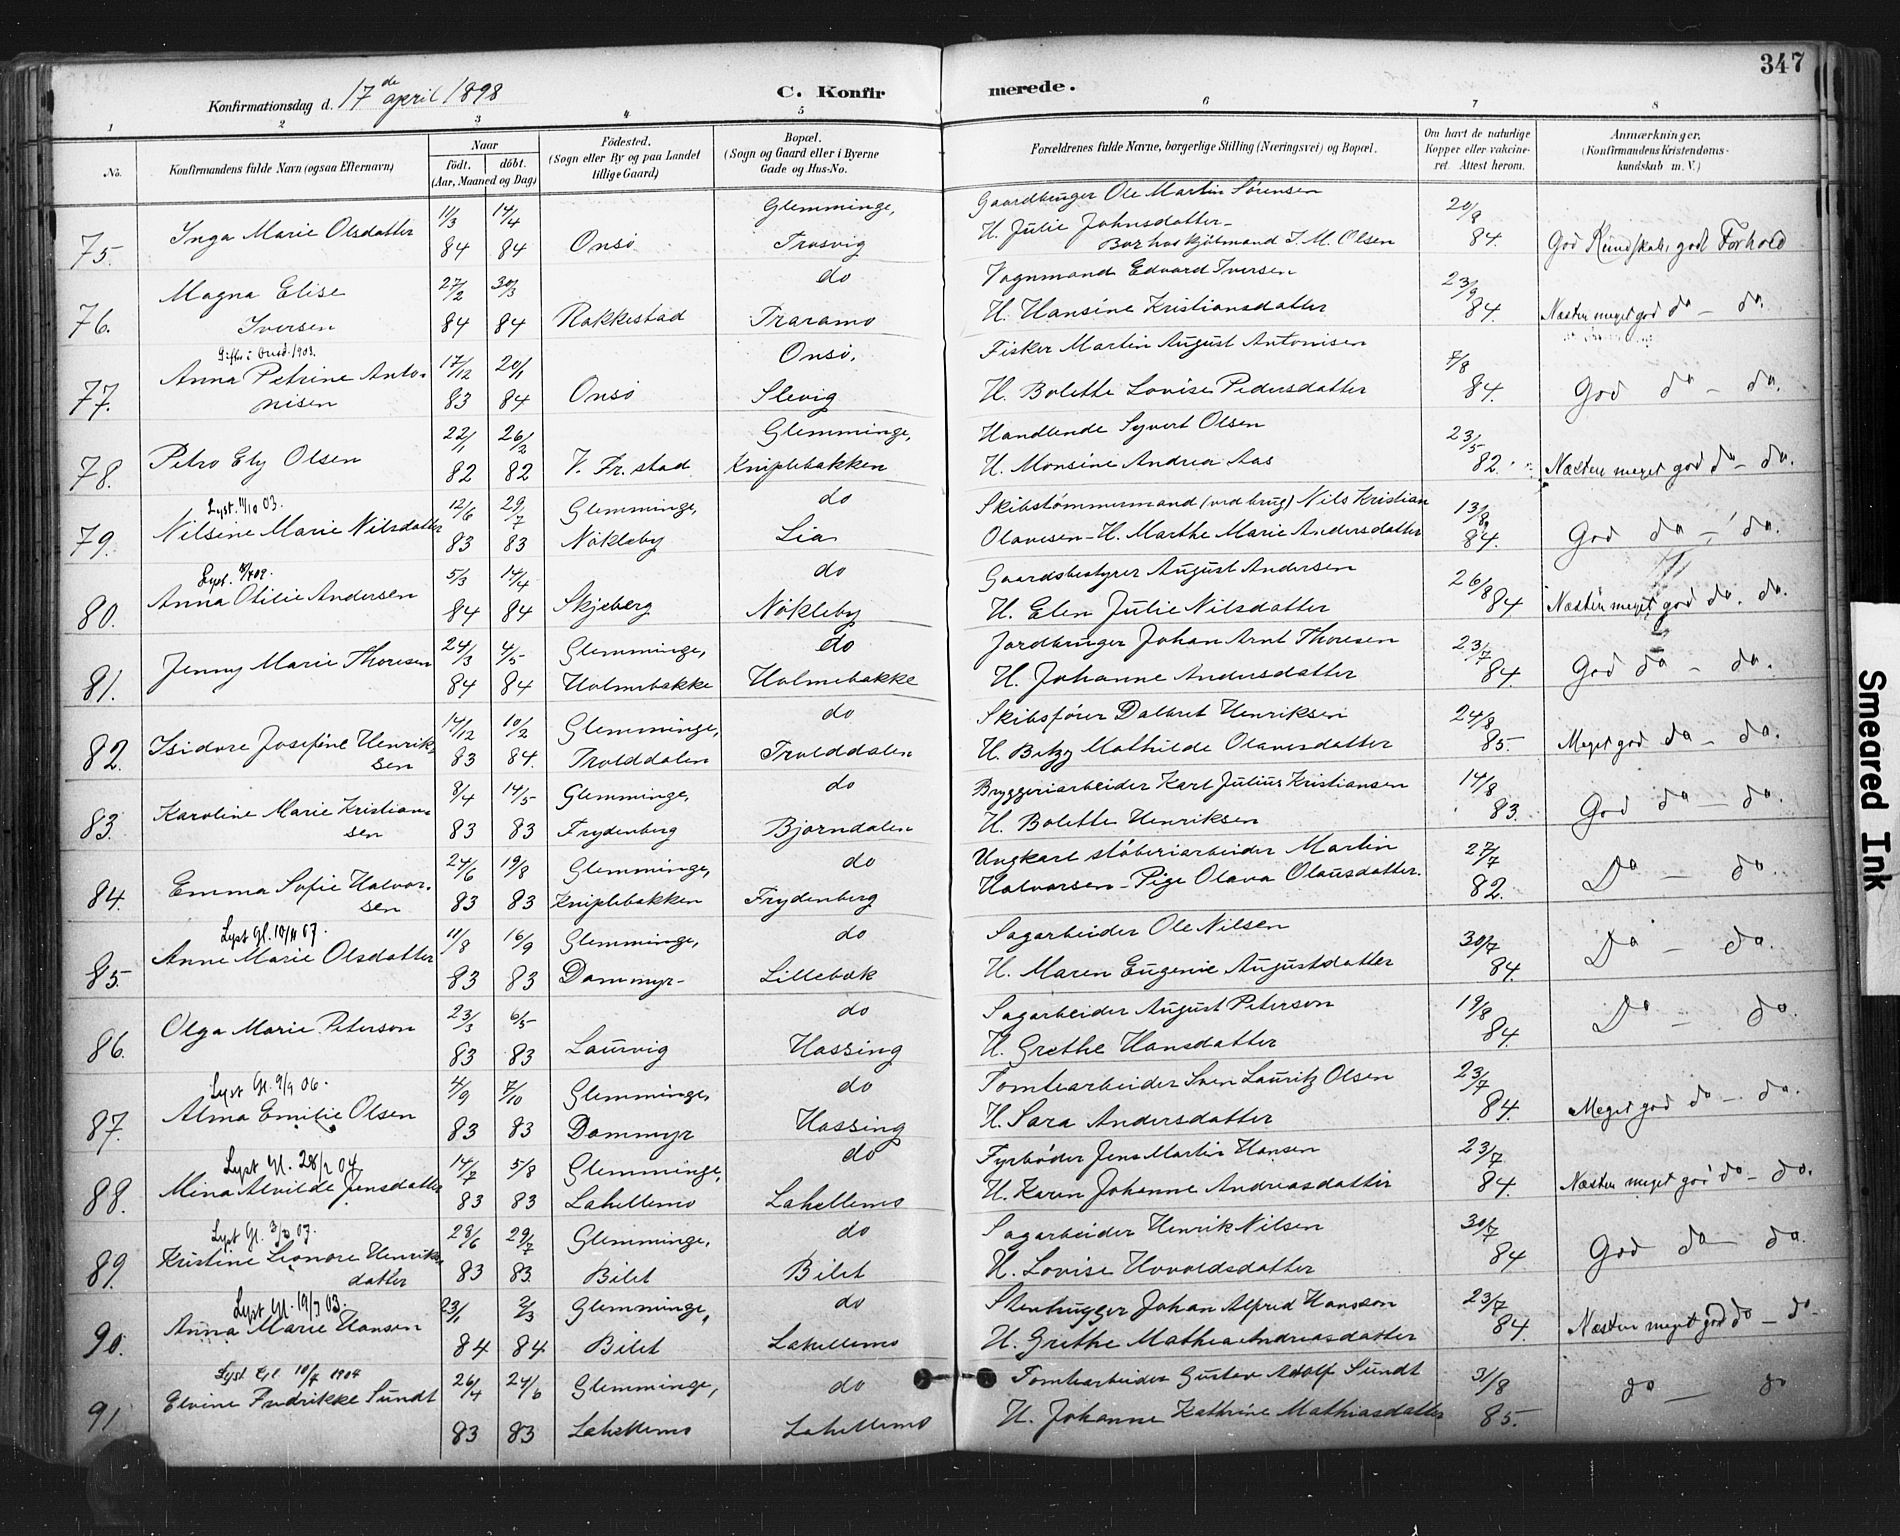 347
Konfirmationsdag d. 17de april 1898
C. Konfirmerede.
1 2 3 4 5 6 7 8
No.
Konfirmandens fulde Navn (ogsaa Efternavn)
Naar
født. døbt.
(Aar, Maaned og Dag)
Fødested.
(Sogn eller By og paa Landet
tillige Gaard)
Bopæl.
(Sogn og Gaard eller i Byerne
Gade og Hus-No.
Forældrenes fulde Navne, borgerlige Stilling (Næringsvei) og Bopæl.
Om havt de naturlige
Kopper eller vakcine-
ret. Attest herom.
Anmærkninger.
(Konfirmandens Kristendoms-
kundskab m. V.)
75. Inga Marie Olsdatter 11/3 84 14/4 84 Onsø Glemminge, Trosvig
Gaardbruger Ole Martin Sørensen
H. Julie Johnsdatter -
Bor hos Kjølmand J. M. Olsen
20/9 84. God Kundskab, godt Forhold
76. Magna Elise Iversen 27/2 84 30/3 84 Rakkestad do Traramo
Vognmand Edvard Iversen
H. Hansine Kristiansdatter
23/9 84. Næsten meget god do - do.
Gift i Onsø 1903.
77. Anna Petrine Antonisen 17/12 83 20/1 84 Onsø Onsø, Slevig
Fisker Martin August Antonisen
H. Bolette Lovise Pedersdatter
7/8 84. God do - do.
78. Petro Ely Olsen 22/1 82 26/2 82 V. Fr.stad Glemminge, Kniplebakken
Handlende Syvert Olsen
H. Monsine Andrea Aas
23/5 82. Næsten meget god do - do.
Lyst. 11/10 03.
79. Nilsine Marie Nilsdatter 12/6 83 29/7 83 Glemminge, Nøkleby do Lia
Skibstømmermand (ved brug) Nils Kristian
Olavesen - H. Marthe Marie Andersdatter
13/8 84. God do - do.
80. Anna Otilie Andersen 5/3 84 14/4 84 Skjeberg do Nøkleby
Gaardsbestyrer August Andersen
H. Elen Julie Nilsdatter
26/8 84 Næsten meget god do. do.
81. Jenny Marie Thoresen 24/3 84 4/5 84 Glemminge, Holmebakke do Holmebakke
Jordbruger Johan Arnt Thoresen
H. Johanne Andersdatter
23/7 84. God do - do.
82. Isidore Josefine Henriksen 14/12 83 10/2 84. Glemminge, Trolddalen do Trolddalen
Skibsfører Dalbert Henriksen
H. Betzy Mathilde Olavesdatter
24/8 85. Meget god do - do.
83. Karoline Marie Kristiansen 8/4 83 14/5 83 Glemminge, Frydenberg do Bjørndalen
Bryggeriarbeider Karl Julius Kristiansen
H. Bolette Henriksen
14/8 83. God do - do.
84. Emma Sofie Halvorsen 24/6 83 19/8 83 Glemminge, Kniplebakken do Frydenberg
Ungkarl støberiarbeider Martin
Halvorsen - Pige Olava Olausdatter.
27/7 82. Do - do.
85. Anne Marie Olsdatter 11/8 83 16/9 83 Glemminge, Dammyr - do Lillebæk
Sagarbeider Ole Nilsen
H. Maren Eugenie Augustdatter
30/7 84. Do - do.
86. Olga Marie Peterson 23/3 83 6/5 83 Laurvig do Hassing
Sagarbeider August Peterson
H. Grethe Hansdatter
19/8 84. Do - do.
Lyst Gl. 9/9 06.
87. Alma Emilie Olsen 4/9 83 7/10 83 Glemminge, Dammyr do Hassing
Tomtearbeider Sven Lauritz Olsen
H. Sara Andersdatter
23/7 84. Meget god do - do.
88. Mina Alvilde Jensdatter 14/7 83 5/8 83 Glemminge, Lahellemo do Lahellemo
Fyrbøder Jens Martin Hansen
H. Karen Johanne Andreasdatter
23/7 84. Næsten meget god do - do.
89. Kristine Leonore Henriksdatter 28/6 83 29/7 83. Glemminge, Bilet do Bilet
Sagarbeider Henrik Nilsen
H. Lovise Hvoldsdatter
30/7 84 God do - do.
90. Anna Marie Hansen 23/1 84 2/3 84 Glemminge, Bilet do Lahellemo
Stenhugger Johan Alfred Hansson
H. Grethe Mathea Andreasdatter
23/7 84. Næsten meget god do - do
Lyst Gl. 10/7 1904
91. Elvine Fredrikke Sundt 26/4 83 24/6 83 Glemminge, Lahellemo do Lahellemo
Tomtearbeider Gustav Adolf Sundt
H. Johanne Kathrine Mathiasdatter
3/8 85. do - do
Smeared Ink